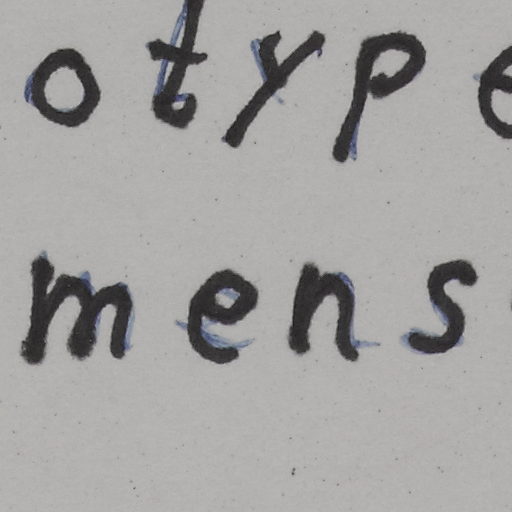 otype
mens